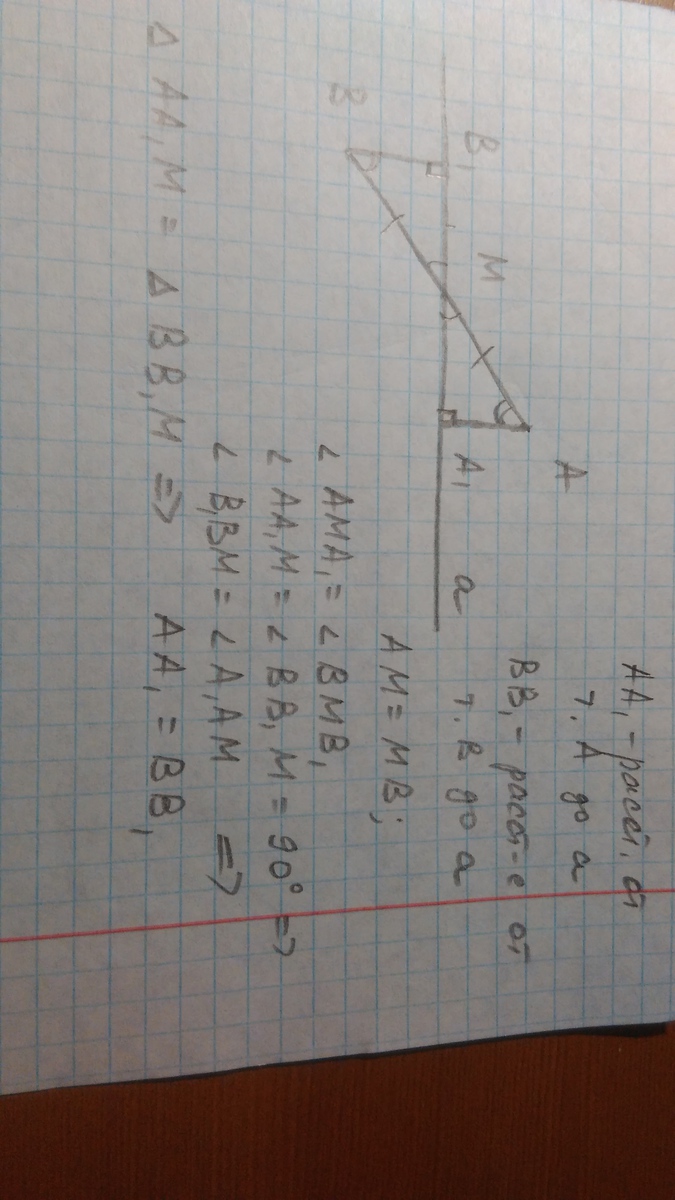 AA₁ - расст. от
т. A до a
BB₁ - расст-е от
т. B до a
A
B₁ M A₁ a
B
AM = MB;
∠ AMA₁ = ∠ BMB₁
∠ AA₁M = ∠ BB₁M = 90° =>
∠ B₁BM = ∠ A₁AM =>
Δ AA₁M = Δ BB₁M => AA₁ = BB₁